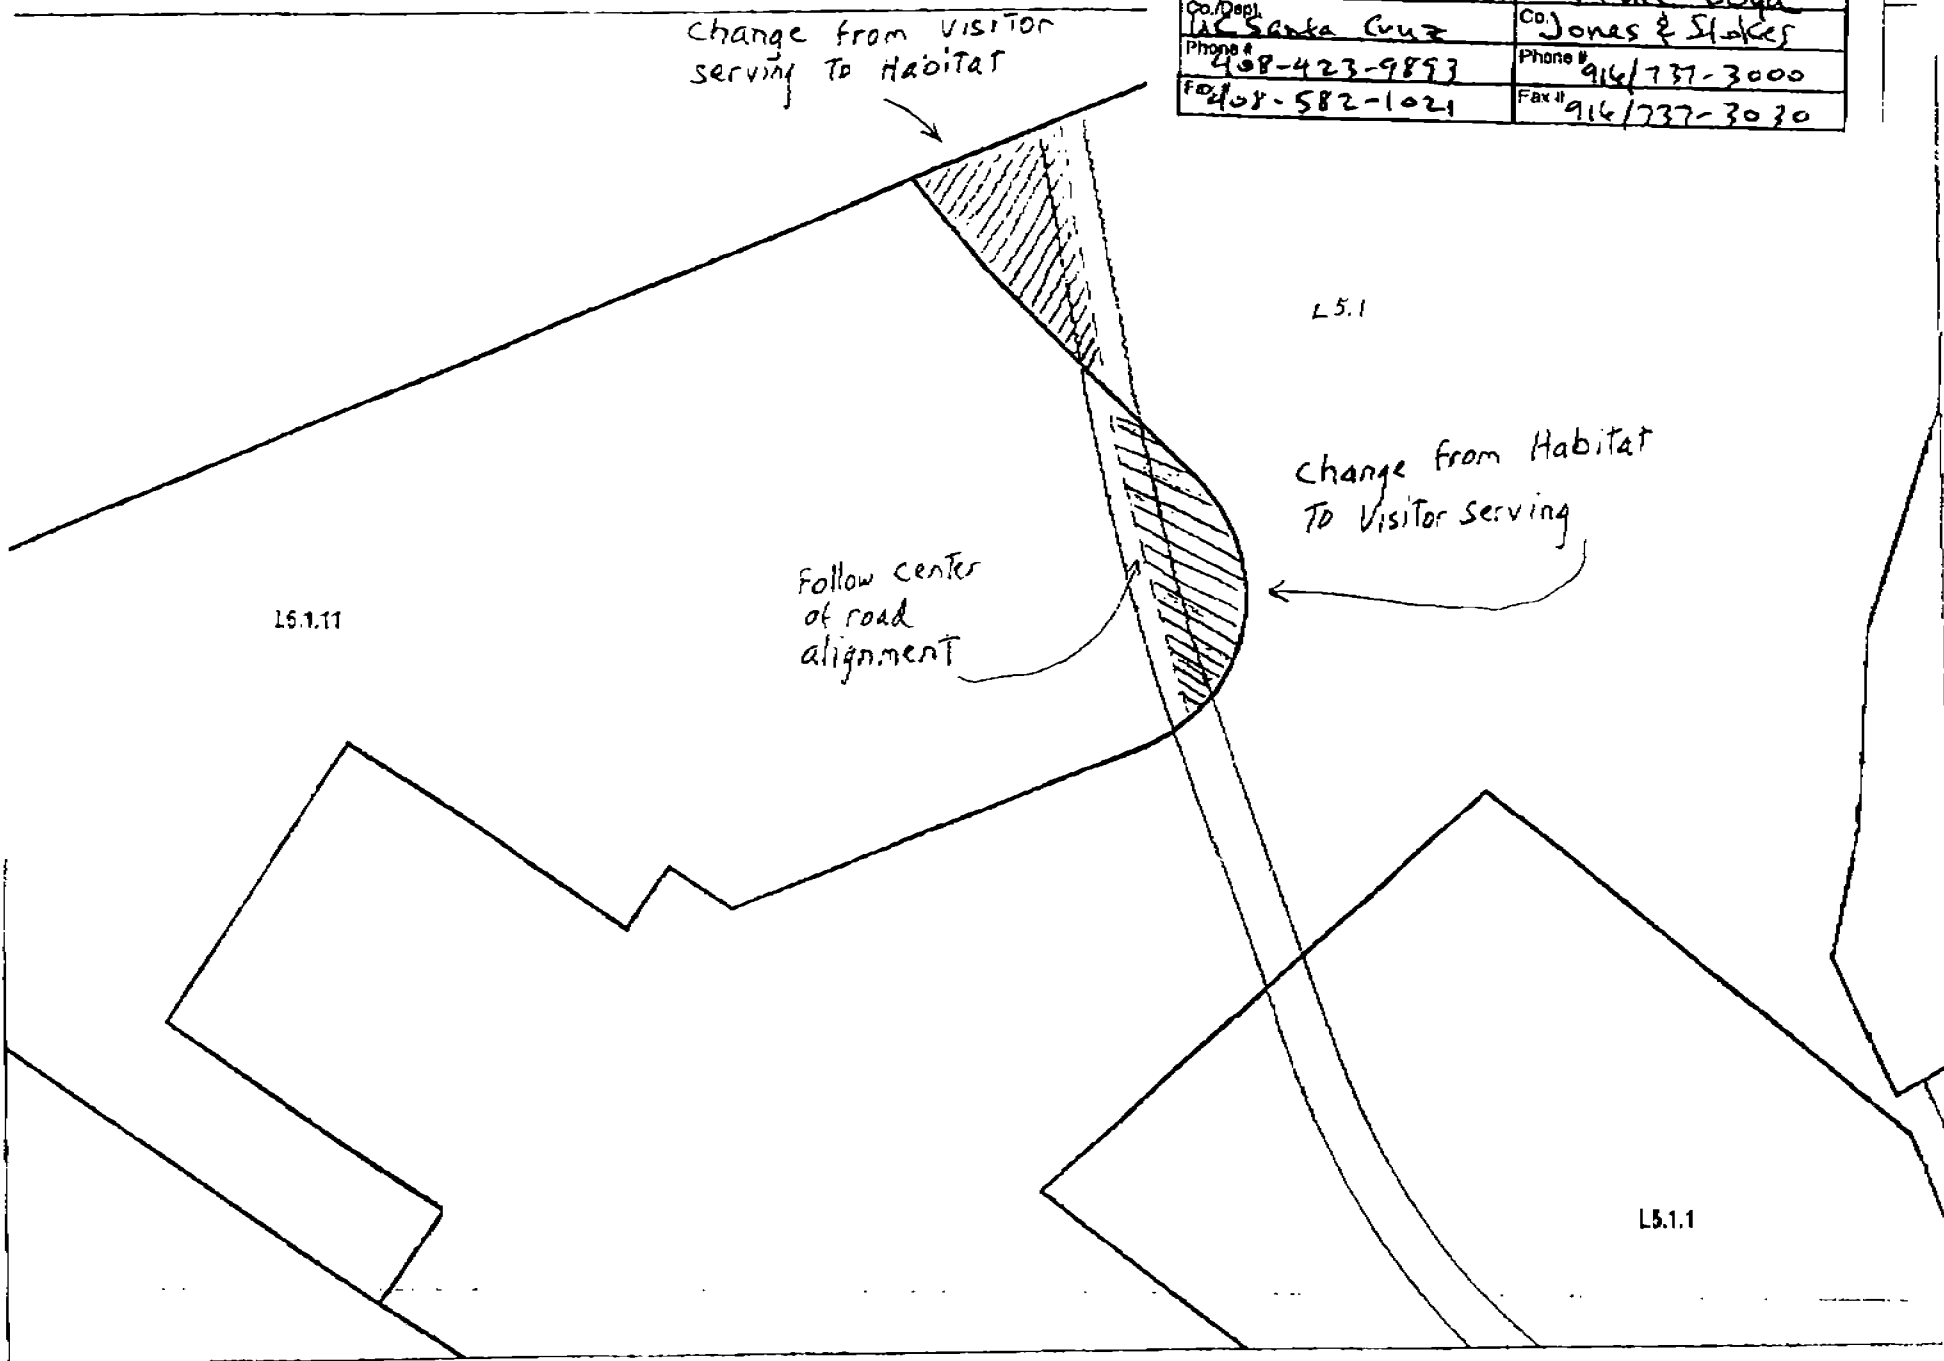 Change from Visitor
serving To Habitat
Co./Dept.
UC Santa Cruz
Co.
Jones & Stokes
Phone #
408-423-9893
Phone #
916/737-3000
Fax #
408-582-1021
Fax #
916/737-3030
L5.1
Change from Habitat
To Visitor serving
Follow center
of road
alignment
L5.1.11
L5.1.1